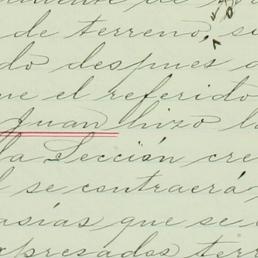 de terreno, si
do despues d
ue el referido
Juan hizo la
la Sección cre
l se contraerá
asías que se
xpresados terr